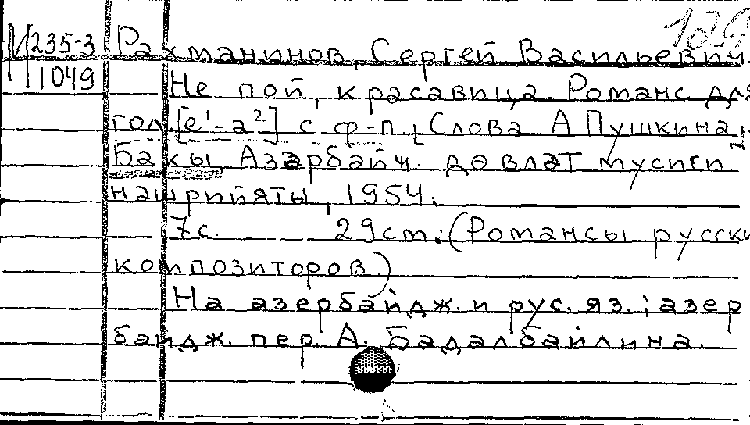 М 235-3 Рахманинов, Сергей Васильевич.
1049 Не пой, красавица. Романс для
гол. [e¹-a²] с ф-п. [Слова А Пушкина.]
Бакы, Азәрбайҹ. дөвләт мусиги
нәшрийяты, 1954.
7с. 29cm. (Романсы русски
композиторов)
На азербайдж. и рус. яз.; азер
байдж. пер. А. Бадалбайлина.